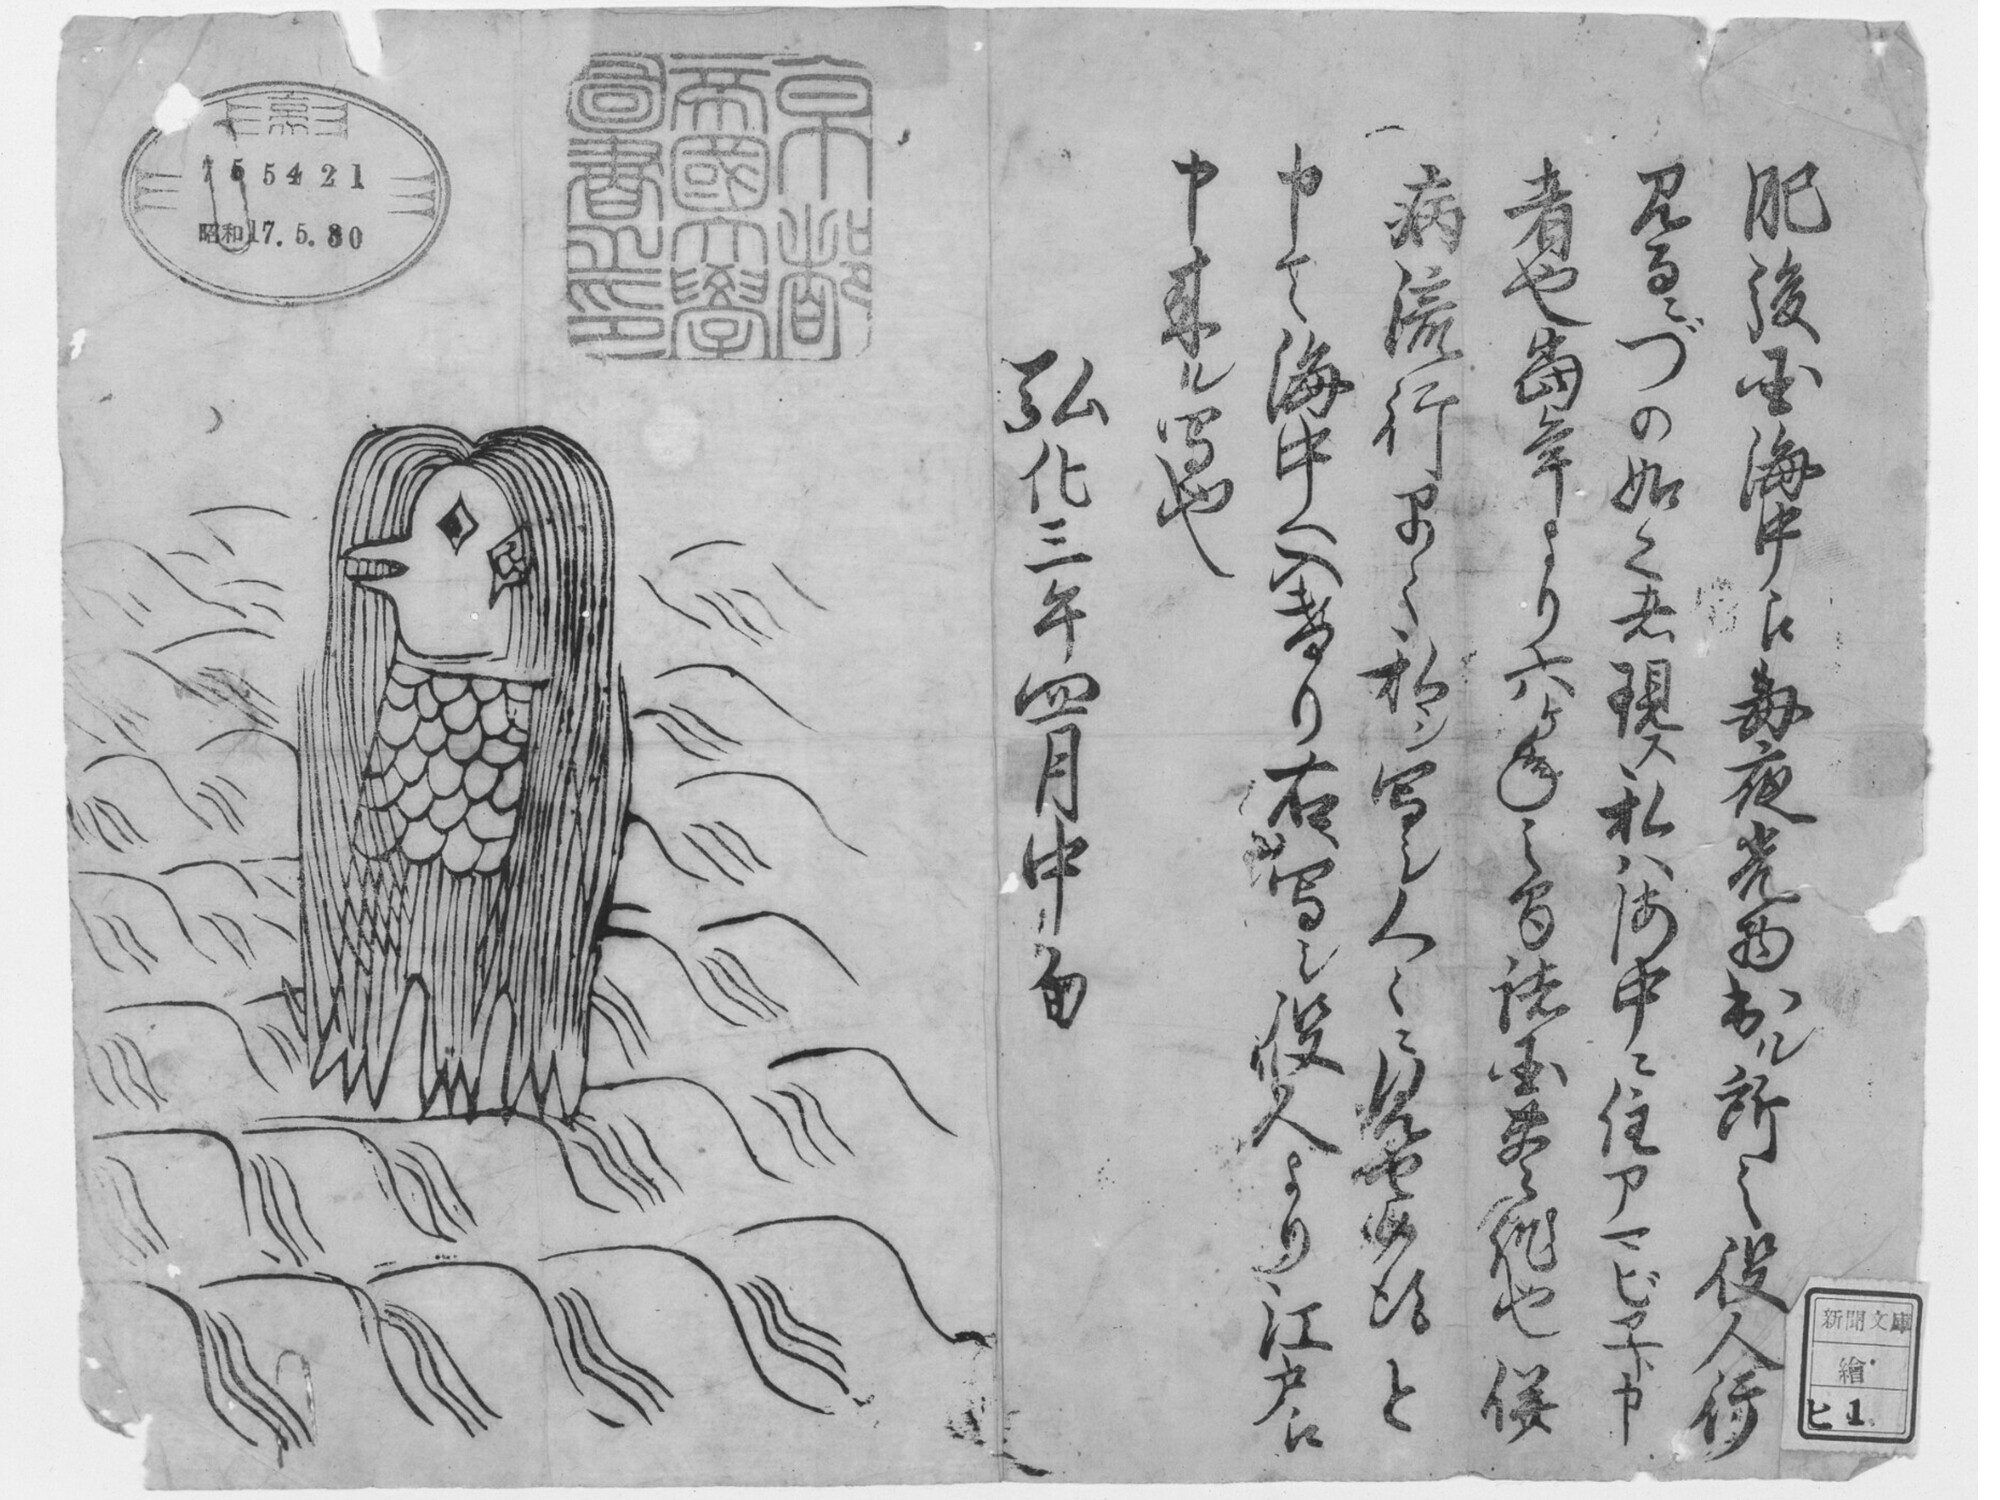 肥後国海中え毎夜光物出ル所之役人行
見るニづの如く者現ス私ハ海中ニ住アマビヱト申
者也當年より六ヶ年之間諸国豊作也併
病流行早々私シ写シ人々ニ見セ候得と
申て海中へ入けり右写シ役人より江戸え
申来ル写也
弘化三年四月中旬
京都
帝國大學
圖書之印
京
755421
昭和17.5.30
新聞文庫
繪
ヒ 1